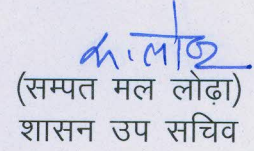 (सम्पत मल लोढ़ा)
शासन उप सचिव